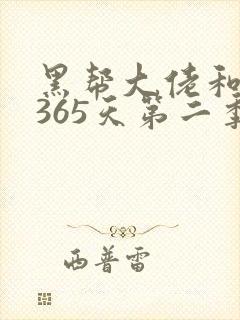 黑帮大佬和
365天第二季
西普雷